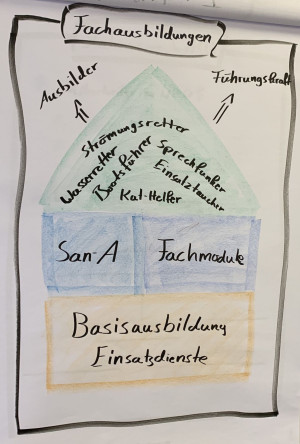 Fachausbildungen
Ausbilder
Führungskraft
Strömungsretter
Wasserretter
Bootsführer
Sprechfunker
Einsatztaucher
Kat-Helfer
San-A
Fachmodule
Basisausbildung
Einsatzdienste